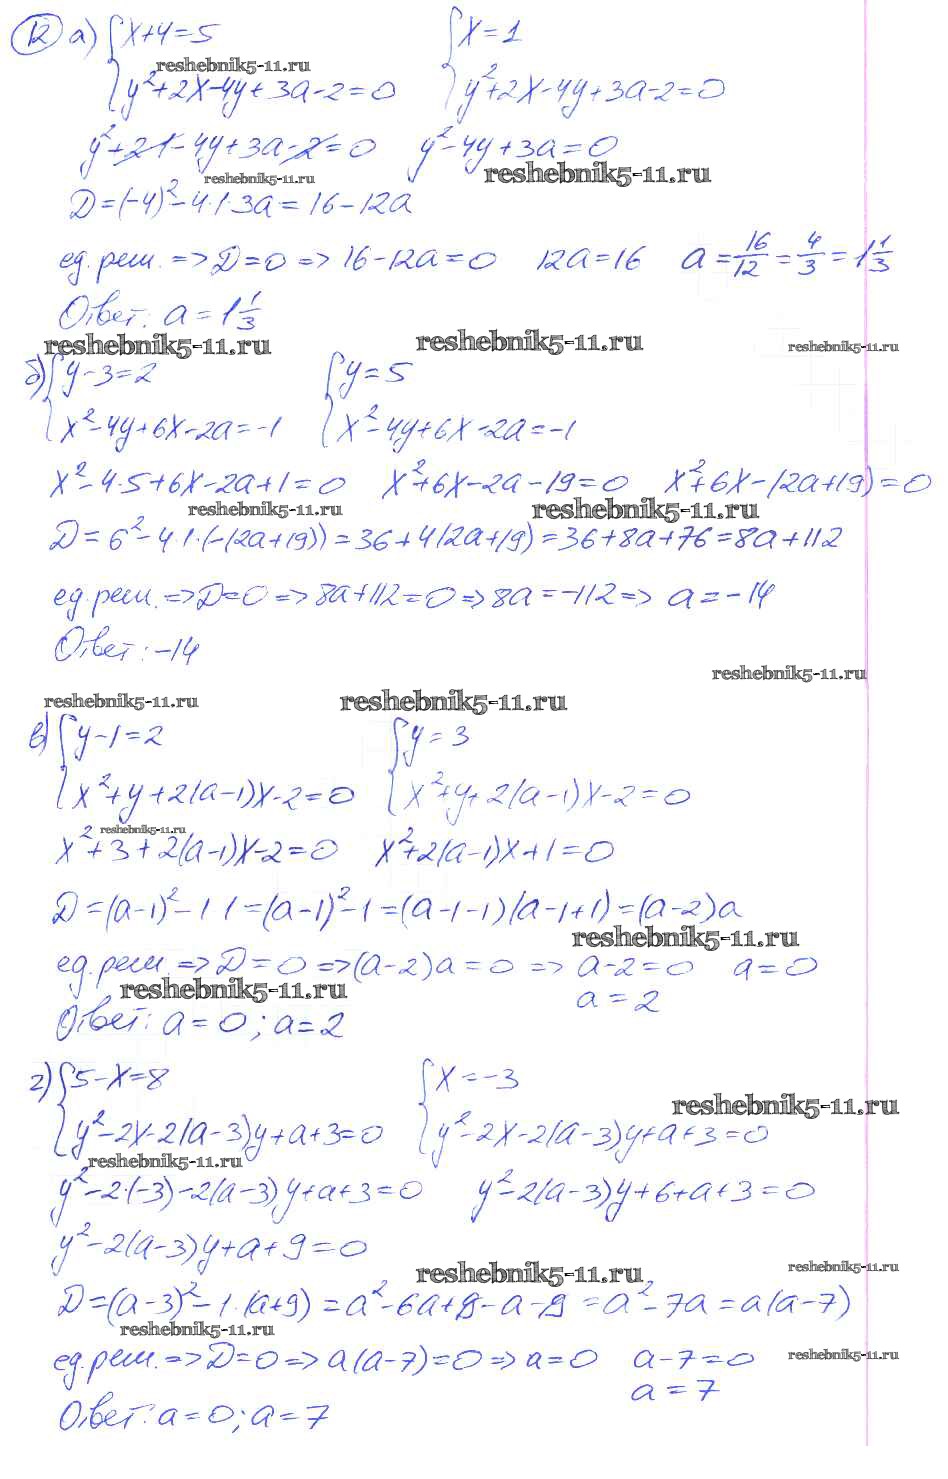 12 а) { x+4=5 { x=1
reshebnik5-11.ru
y²+2x-4y+3a-2=0 y²+2x-4y+3a-2=0
y²+2·1-4y+3a-2=0 y²-4y+3a=0
reshebnik5-11.ru reshebnik5-11.ru
D=(-4)²-4·1·3a=16-12a
ед. реш. => D=0 => 16-12a=0 12a=16 a=16/12=4/3=1 1/3
Ответ: a=1 1/3
reshebnik5-11.ru reshebnik5-11.ru reshebnik5-11.ru
б) { y-3=2 { y=5
x²-4y+6x-2a=-1 x²-4y+6x-2a=-1
x²-4·5+6x-2a+1=0 x²+6x-2a-19=0 x²+6x-(2a+19)=0
reshebnik5-11.ru reshebnik5-11.ru
D=6²-4·1·(-(2a+19))=36+4(2a+19)=36+8a+76=8a+112
ед. реш. => D=0 => 8a+112=0 => 8a=-112 => a=-14
Ответ: -14
reshebnik5-11.ru
reshebnik5-11.ru reshebnik5-11.ru
в) { y-1=2 { y=3
x²+y+2(a-1)x-2=0 x²+y+2(a-1)x-2=0
reshebnik5-11.ru
x²+3+2(a-1)x-2=0 x²+2(a-1)x+1=0
D=(a-1)²-1·1=(a-1)²-1=(a-1-1)(a-1+1)=(a-2)a
reshebnik5-11.ru
ед. реш. => D=0 => (a-2)a=0 => a-2=0 a=0
reshebnik5-11.ru
a=2
Ответ: a=0; a=2
г) { 5-x=8 { x=-3
reshebnik5-11.ru
y²-2x-2(a-3)y+a+3=0 y²-2x-2(a-3)y+a+3=0
reshebnik5-11.ru
y²-2·(-3)-2(a-3)y+a+3=0 y²-2(a-3)y+6+a+3=0
y²-2(a-3)y+a+9=0
reshebnik5-11.ru reshebnik5-11.ru
D=(a-3)²-1·(a+9)=a²-6a+9-a-9=a²-7a=a(a-7)
reshebnik5-11.ru
ед. реш. => D=0 => a(a-7)=0 => a=0 a-7=0
reshebnik5-11.ru
a=7
Ответ: a=0; a=7